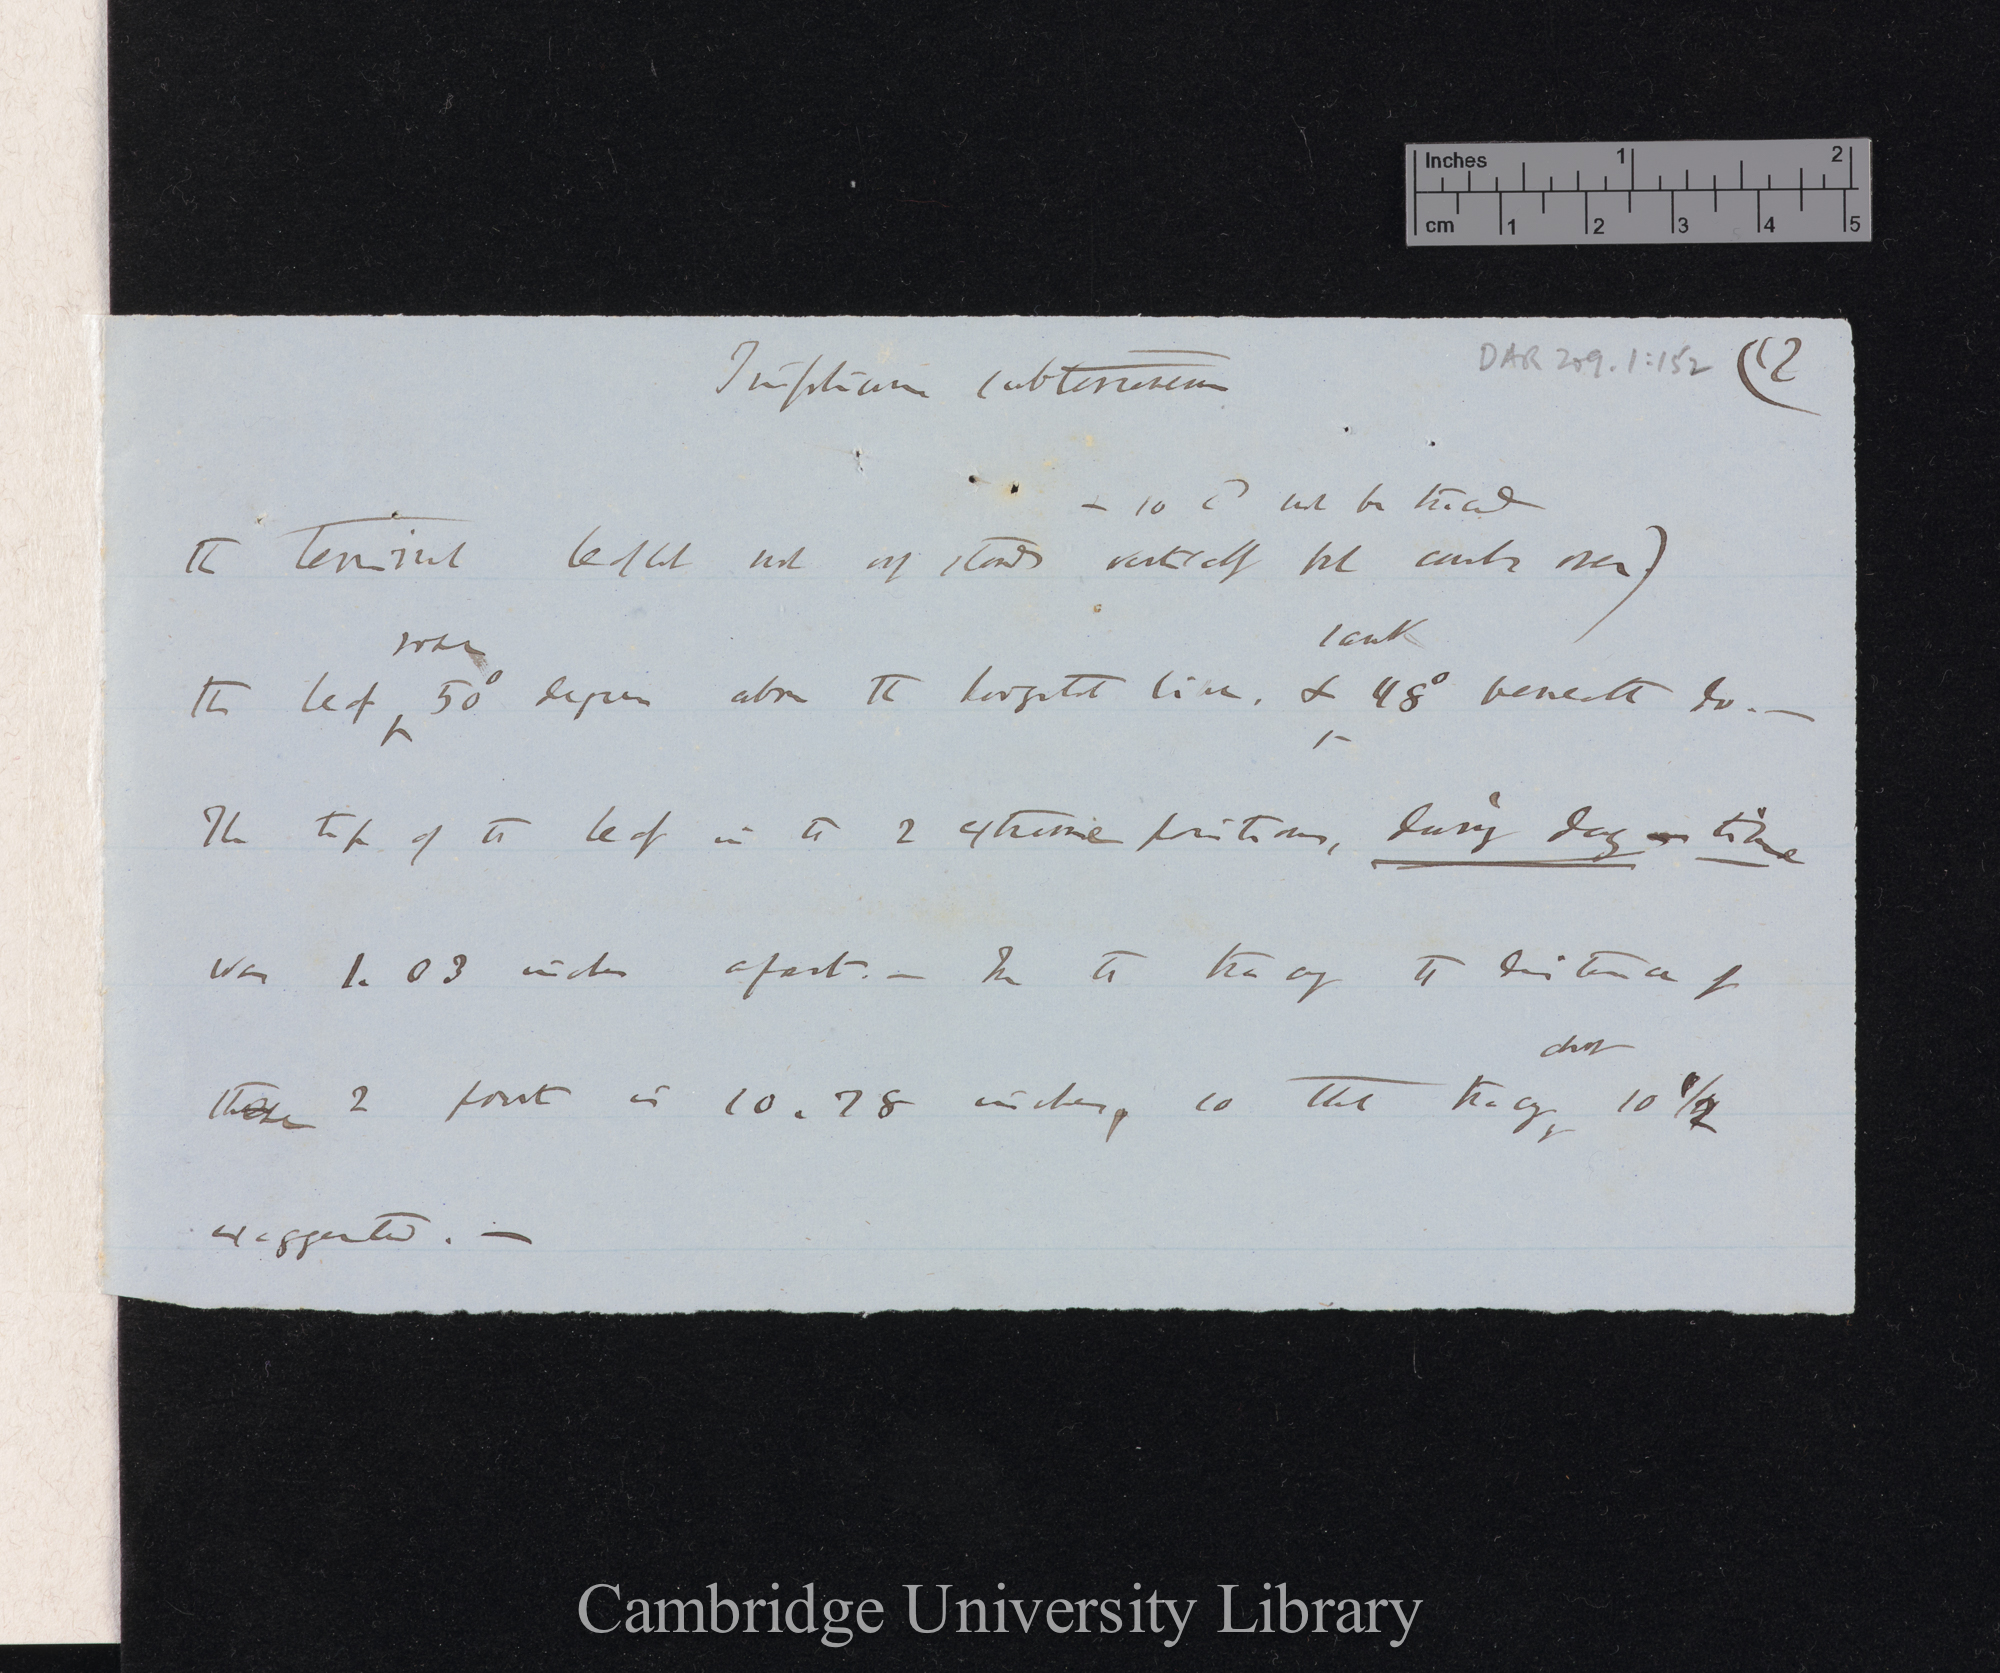 Inches 1 2
cm 1 2 3 4 5
Trifolium subterraneum
DAR 209.1:152
(12
& so cd not be traced
the terminal leaflet not only stands vertically but curls over)
rose
sank
the leaf 50° degrees above the horizontal line, & 48° beneath do. —
The tip of the leaf in the 2 extreme positions, during day-time
was 1.03 inches apart. — In the tracing the distance of
these 2 points is 10.78 inches, so that tracing 10 1/2
about
exaggerated. —
Cambridge University Library